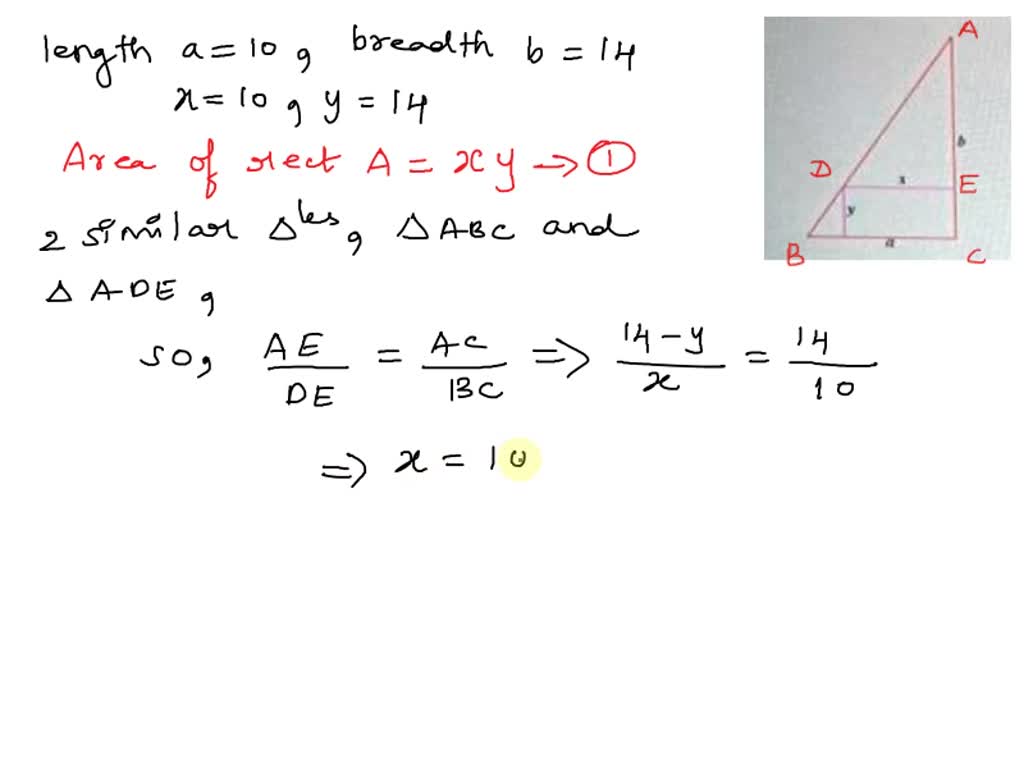 length a = 10, breadth b = 14
x = 10, y = 14
Area of rect A = xy → ①
2 similar Δles, Δ ABC and
Δ ADE,
so, AE/DE = AC/BC ⇒ 14 - y/x = 14/10
⇒ x = 10
A
b
D
x
E
y
B
a
C